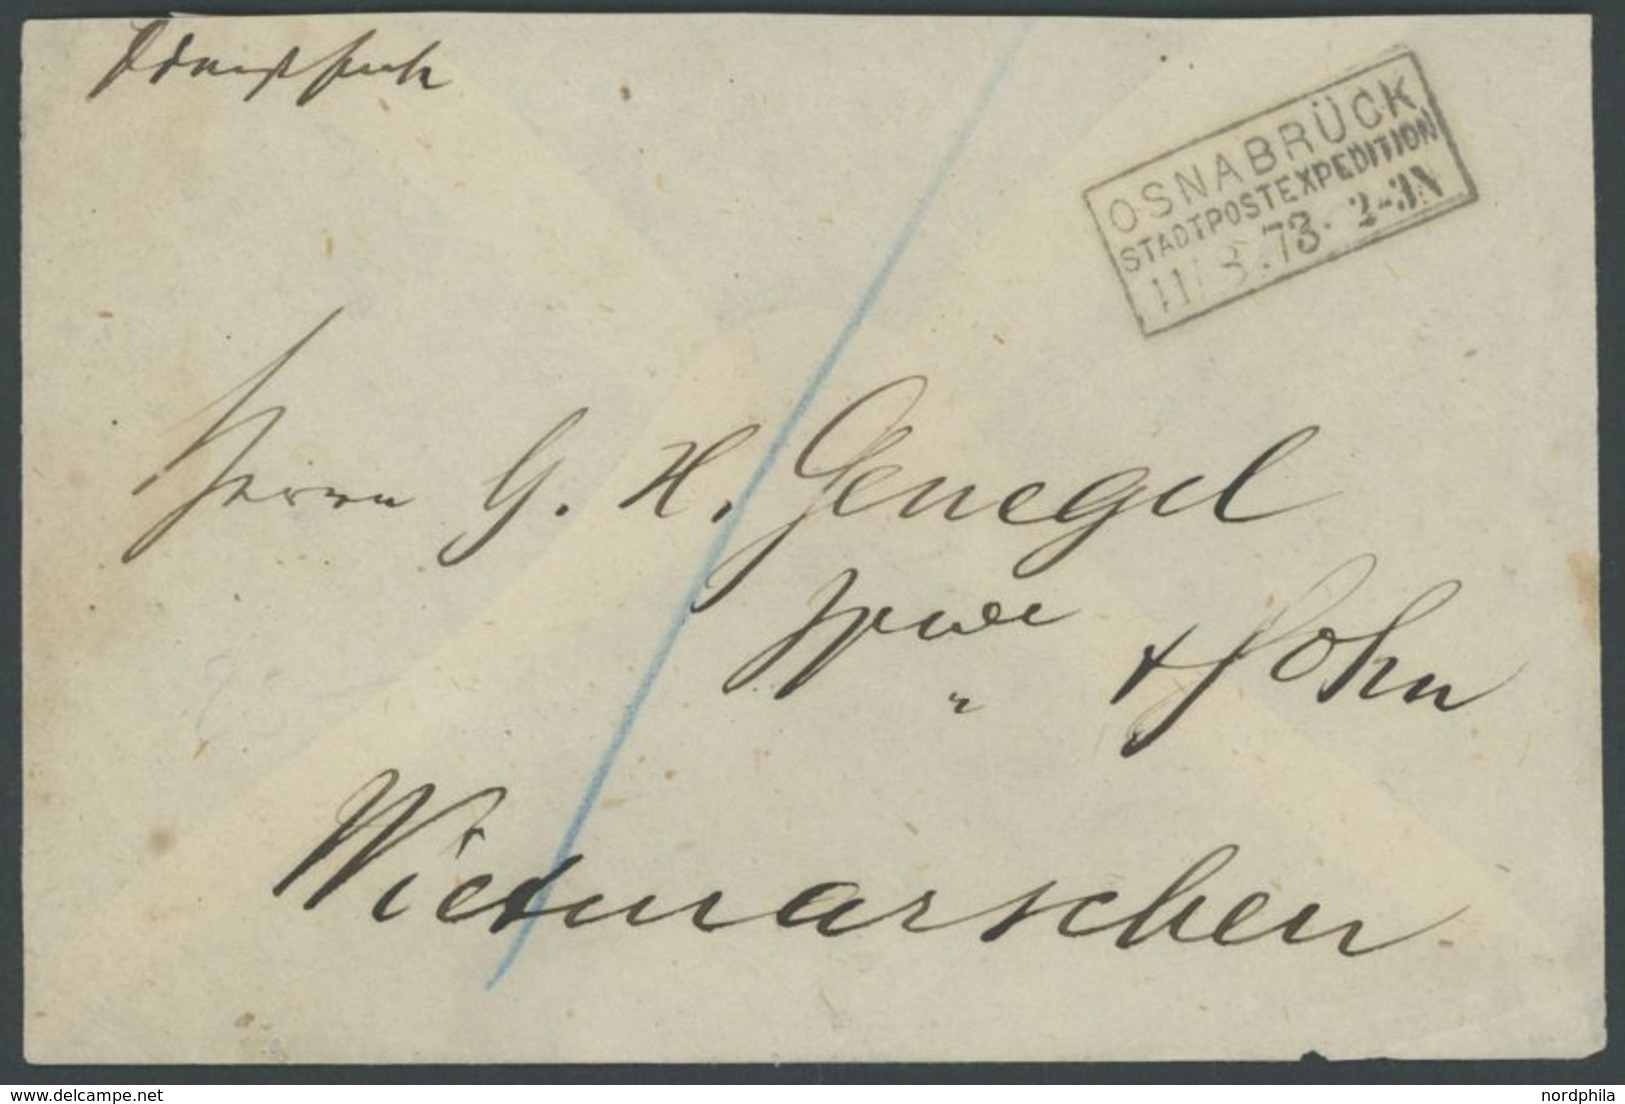 OSNABRÜCK
STADTPOSTEXPEDITION
11/ 3.73. 2-3N
Herrn G. H. Genegel
Wwe
& Sohn
Wietmarschen
delcampe.net
nordphila